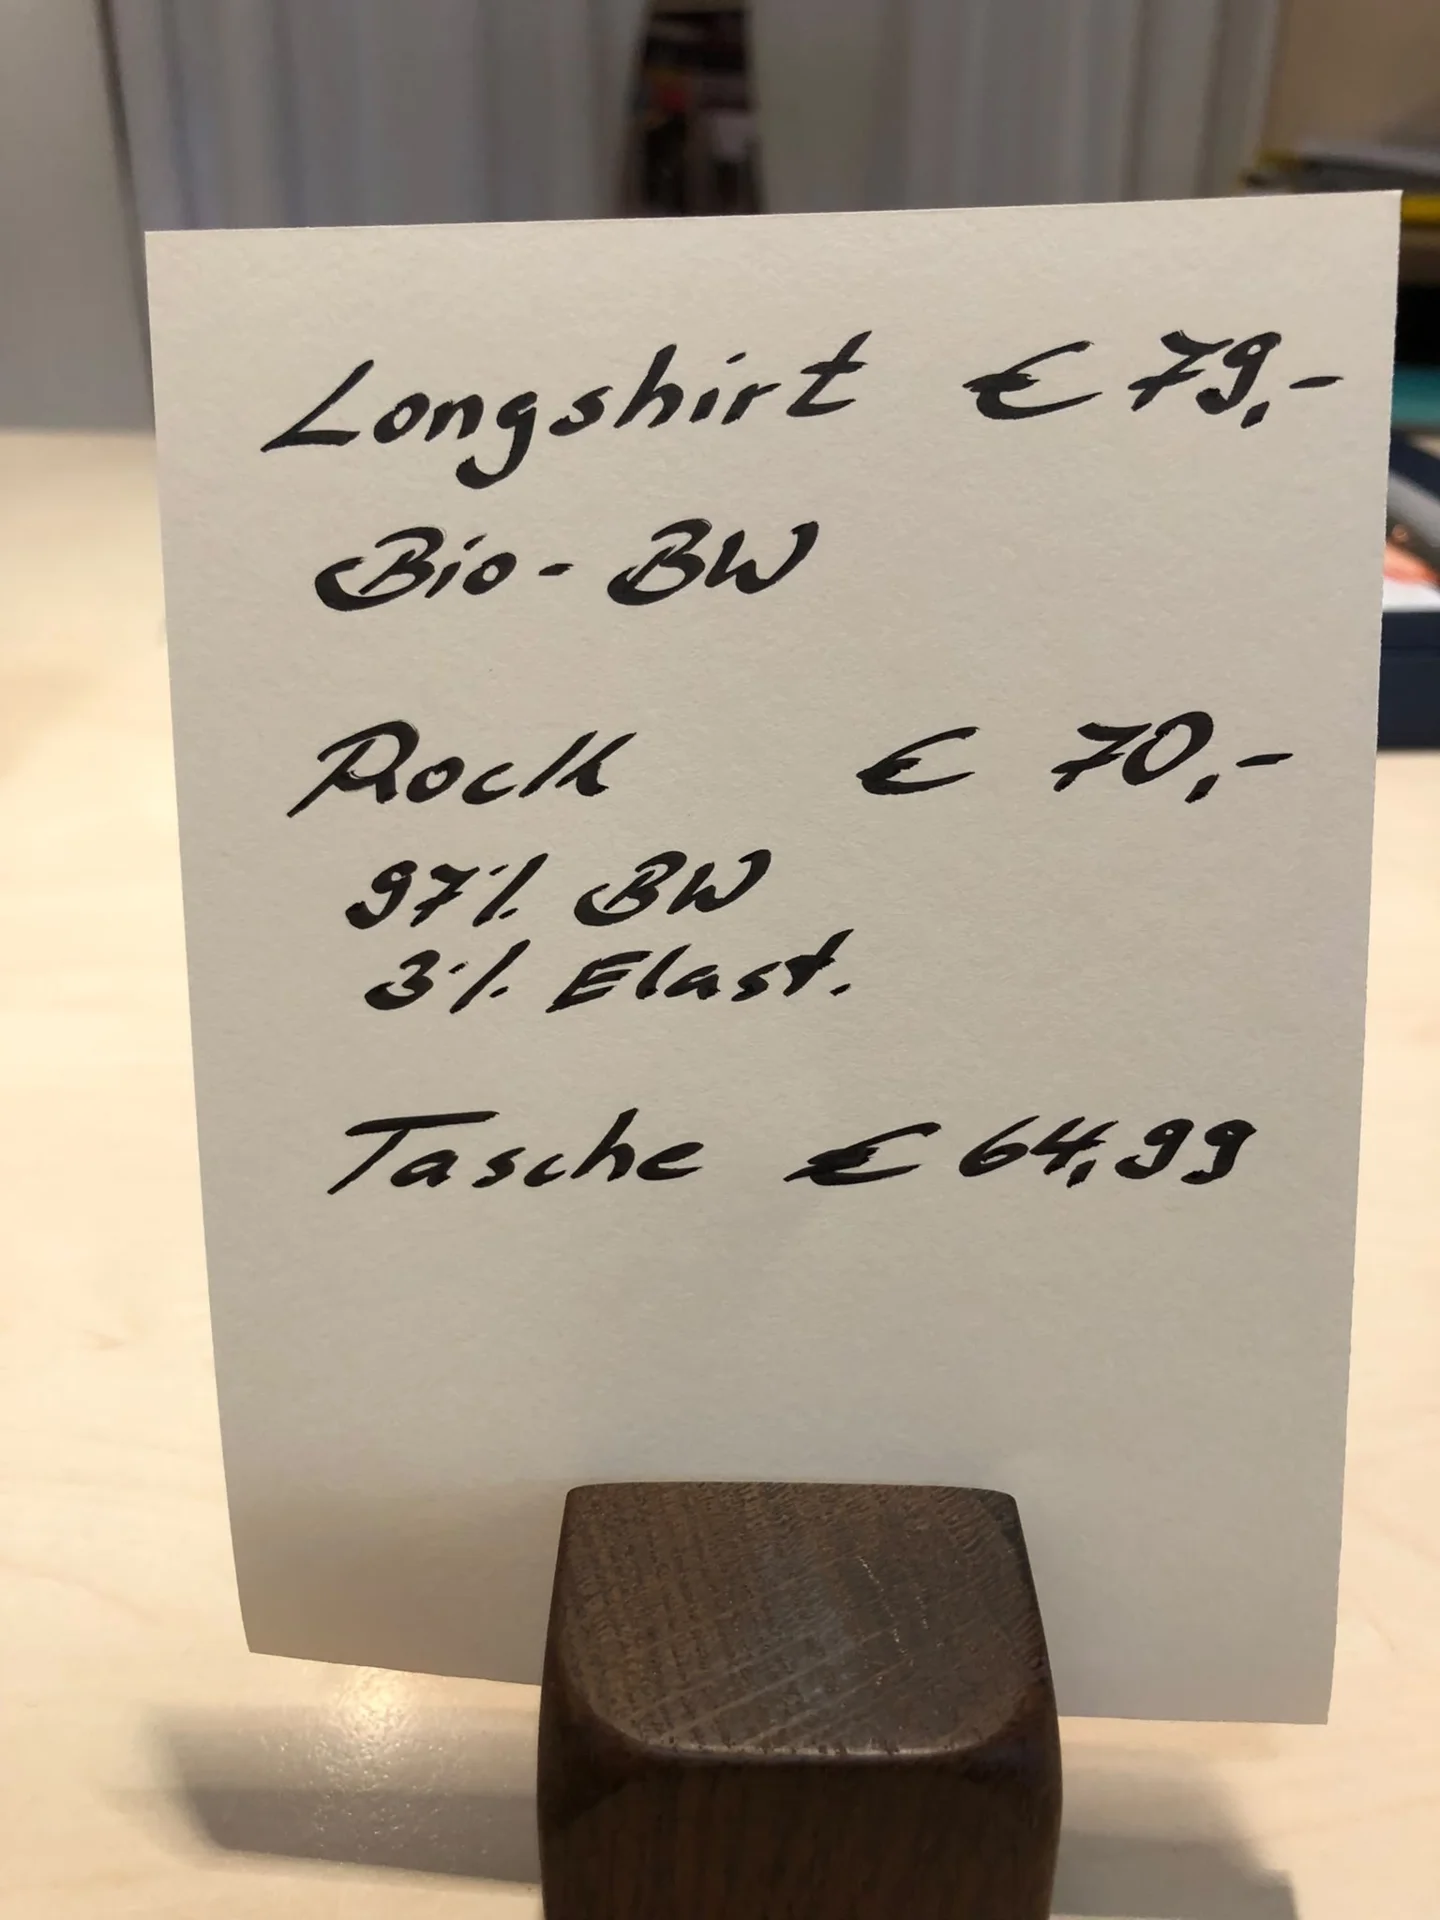 Longshirt € 79,-
Bio-BW
Rock € 70,-
97% BW
3% Elast.
Tasche € 64,99